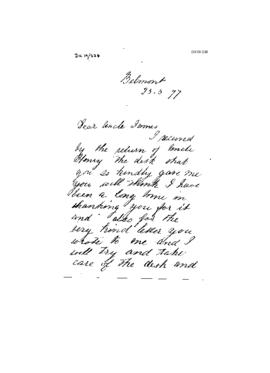 Belmont
23.3 77
Dear Uncle James
I received
by the return of Uncle
Henry the desk that
you so kindly gave me
you will think I have
been a long time in
thanking you for it
and also for the
very kind letter you
wrote to me and I
will try and take
care of the desk and